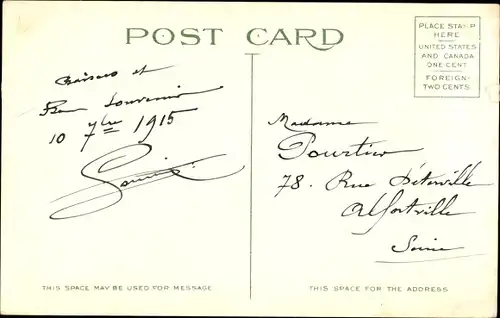 POST CARD
PLACE STAMP
HERE
UNITED STATES
AND CANADA
ONE CENT
FOREIGN-
TWO CENTS
Baisers et
Bon Souvenir
10 7bre 1915
Madame
Pourtier
78. Rue Déterville
Alfortville
Seine
THIS SPACE MAY BE USED FOR MESSAGE
THIS SPACE FOR THE ADDRESS